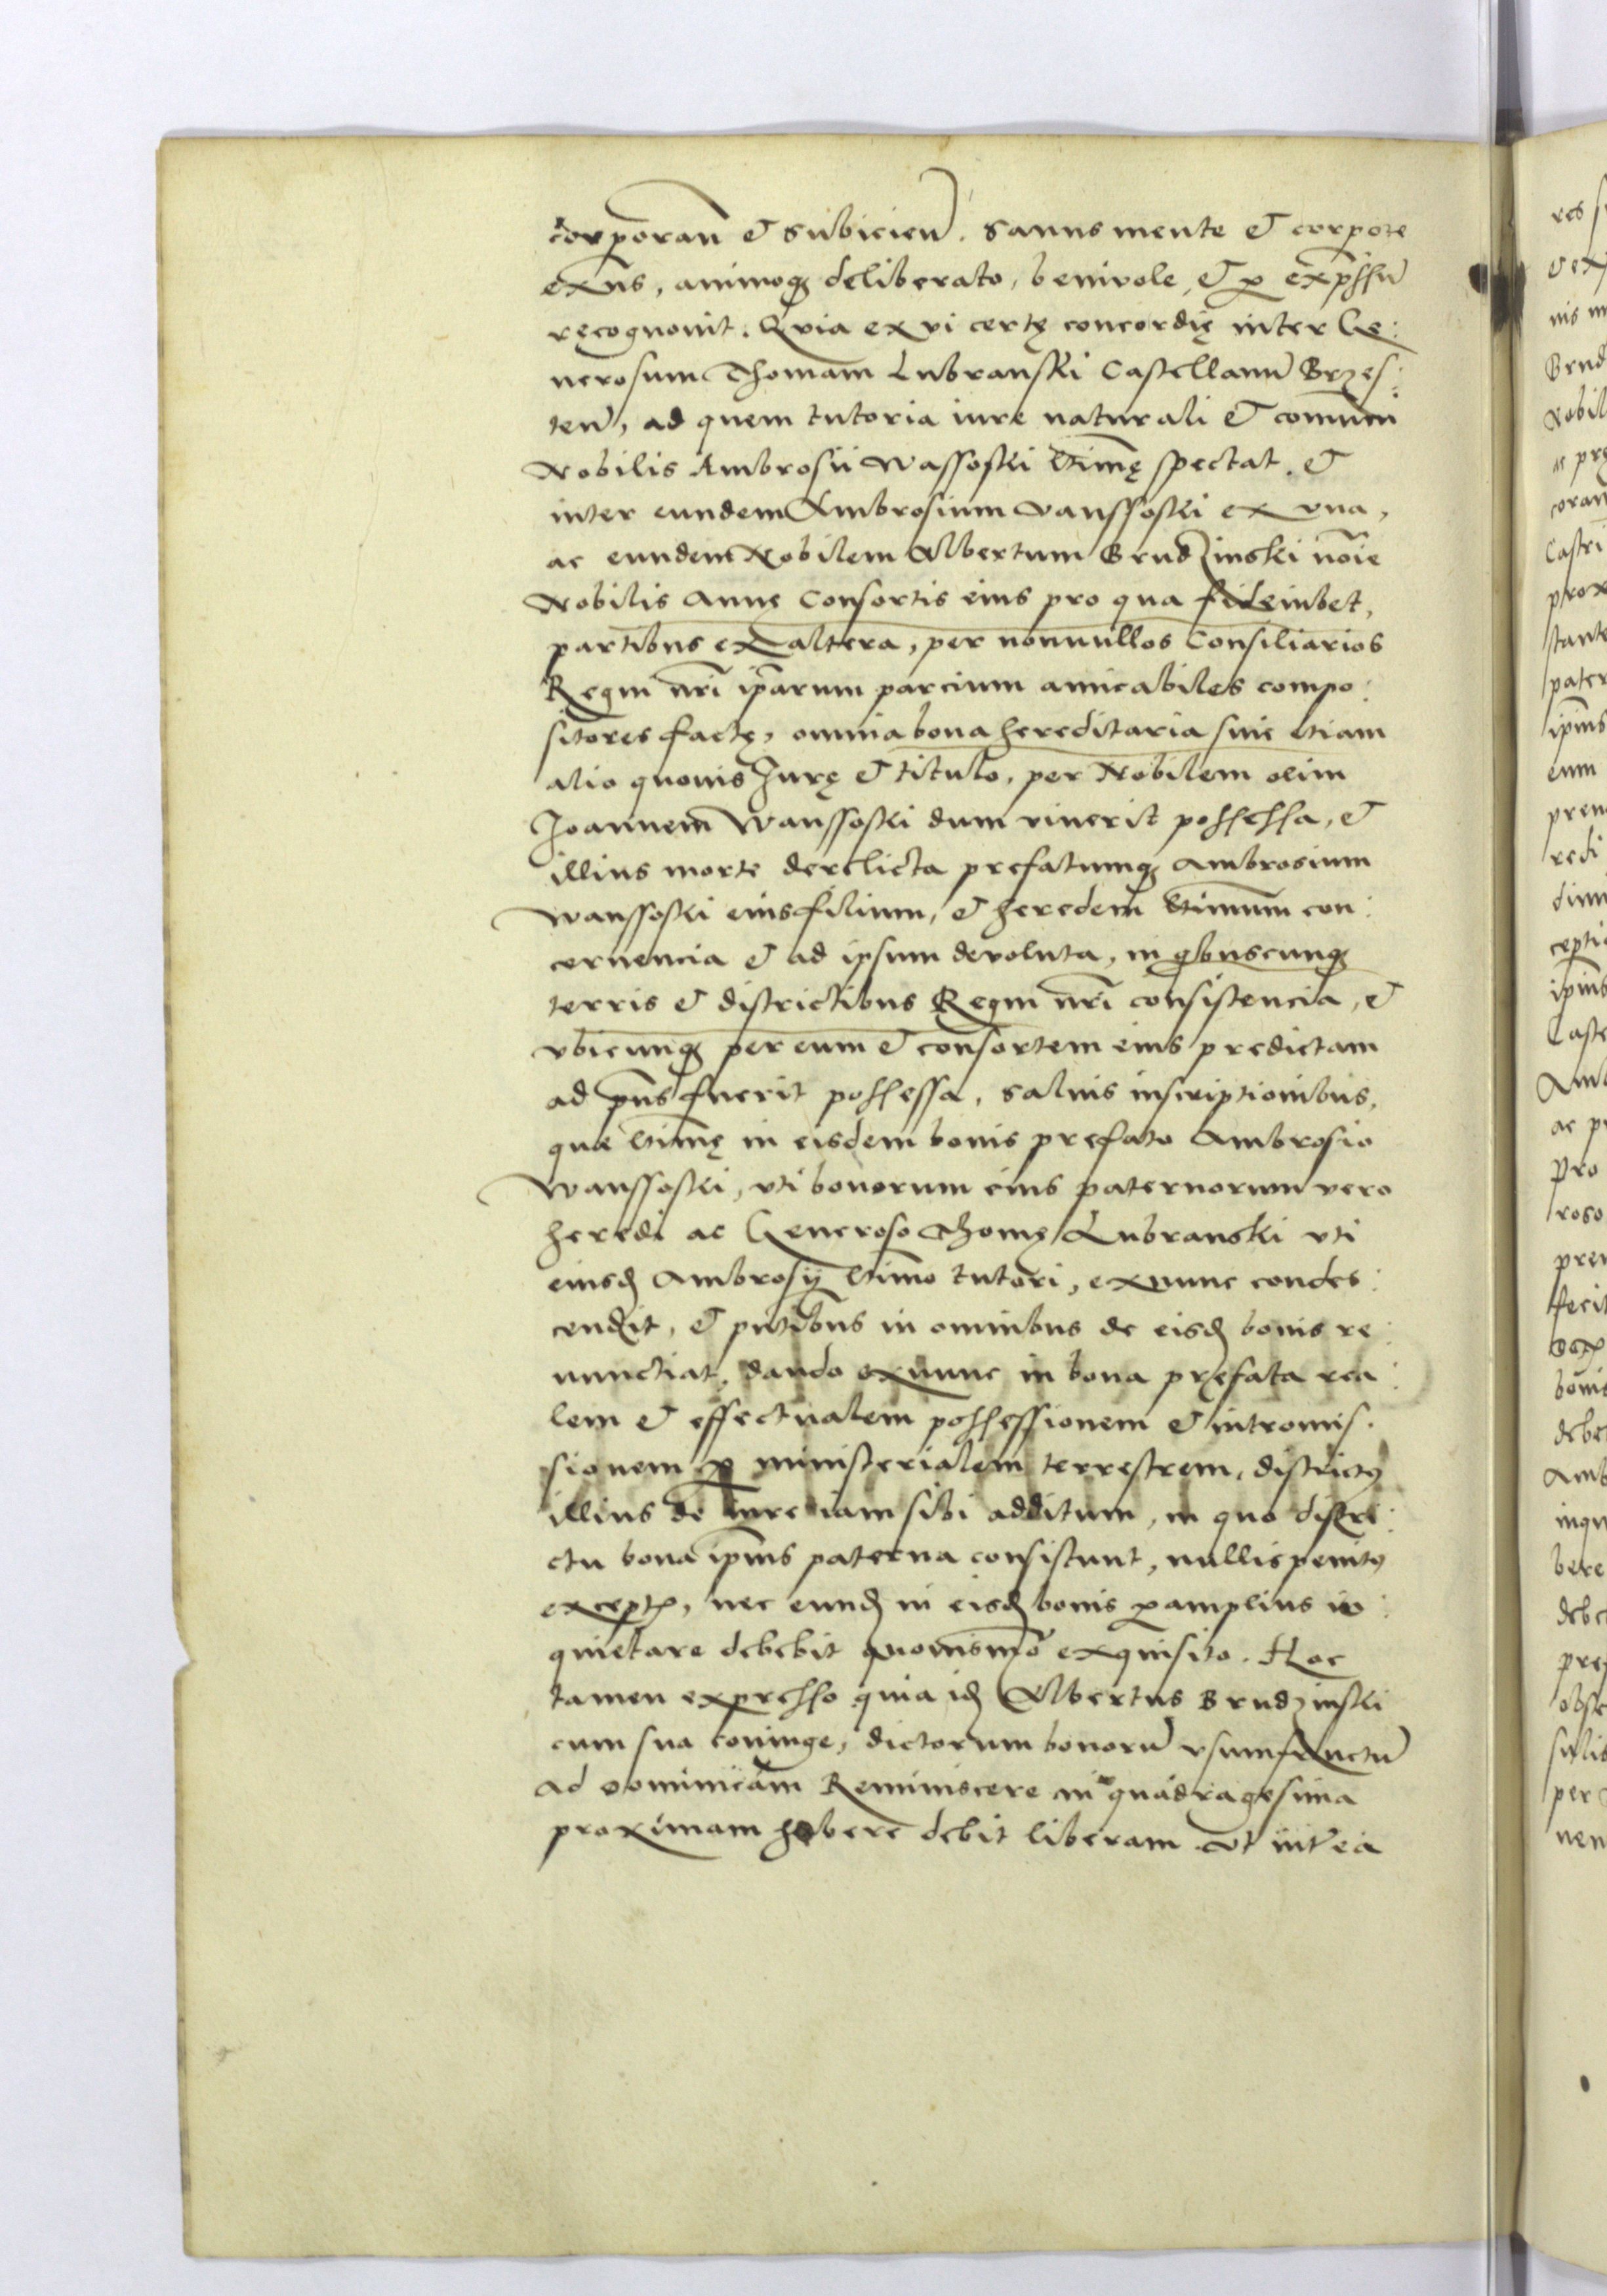 corporan̄ et subicien̄. Sanus mente et corpore
exn̄s, animoq₃ deliberato, benivole, et ꝑ exp̄ssū
ręcognovit. Quia ex vi certę concordię inter Ge:
nerosum Thomam Lubranski Castellanū Brzes:
ten̄, ad quem tutoria iure naturali et comuni
Nobilis Ambrosii Wassoski ltimę spectat. et
inter eundem Ambrosium Vanssoski ex vna,
ac eundem Nobilem Albertum Brudzinski noīe
Nobilis Annę consortis eius pro qua fideiubet,
partibus ex altera, per nonnullos Consiliarios
Regni nr̄i ip̄arum parcium amicabiles compo:
sitores factę, omnia bona hereditaria sive etiam
alio quovis Jurę et titulo, per Nobilem olim
Joannem Wanssoski dum vixerit possessa, et
illius morte derelicta prefatumq₃ Ambrosium
Wanssoski eius filium, et heredem ltimum con:
cernencia et ad ipsum devoluta, in qbuscunq₃
terris et districtibus Regni nr̄i consistencia, et
vbicunq₃ per eum et consortem eius predictam
ad pn̄s fuerit possessa, salvis inscriptionibus,
que ltimę in eisdem bonis prefato Ambrosio
Wanssoski, vti bonorum eius paternorum vero
heredi ac Generoso Thomę Lubranski vti
eiusd Ambrosij ltimo tutori, ex nunc condes:
cendit, et pn̄tibus in omnibus de eisd bonis re:
nunctiat, dando ex nunc in bona pręfata rea:
lem et effectualem possessionem et intromis:
sionem ꝑ ministerialem terrestrem, districtꝰ
illius de iure iam sibi additum, in quo distri:
ctu bona ip̄ius paterna consistunt, nullis penitꝰ
exceptꝭ, nec eund in eisd bonis ꝑamplius in:
quietare debebit quovismō exquisito. Hoc
tamen expresso quia id Albertus Brudzinski
cum sua coniuge, dictorum bonorū vsumfructū
ad dominicam Reminiscere in quadragesima
proximam habere debit liberam. vt int̄ea